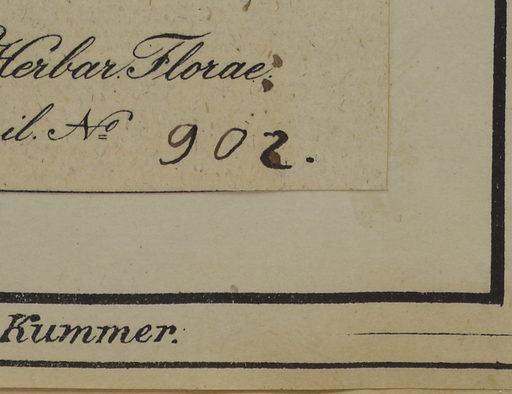 Herbar. Florae
il. No 902.
Kummer.